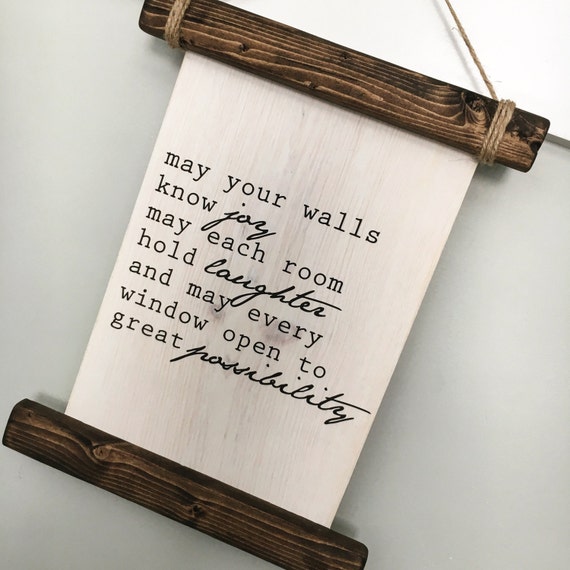 may your walls
know joy
may each room
hold laughter
and may every
window open to
great possibility